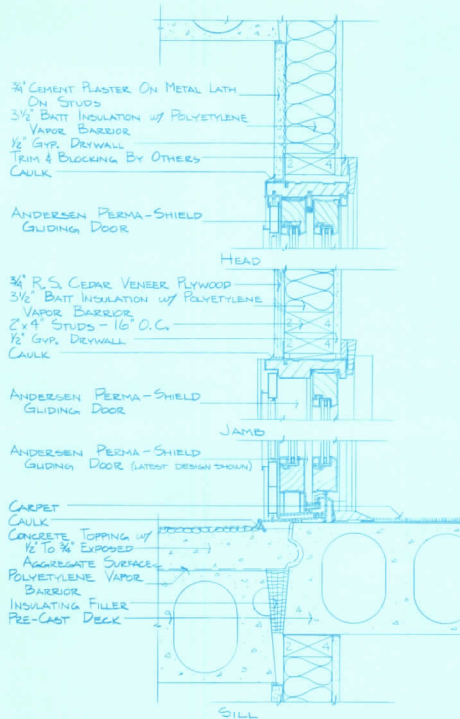 ¾" CEMENT PLASTER ON METAL LATH
ON STUDS
3½" BATT INSULATION W/ POLYETYLENE
VAPOR BARRIER
½" GYP. DRYWALL
TRIM & BLOCKING BY OTHERS
CAULK
ANDERSEN PERMA-SHIELD
GLIDING DOOR
2 4
HEAD
¾" R.S. CEDAR VENEER PLYWOOD
3½" BATT INSULATION W/ POLYETYLENE
VAPOR BARRIER
2"x4" STUDS - 16" O.C.
½" GYP. DRYWALL
CAULK
2 4
2 4
ANDERSEN PERMA-SHIELD
GLIDING DOOR
JAMB
ANDERSEN PERMA-SHIELD
GLIDING DOOR (LATEST DESIGN SHOWN)
CARPET
CAULK
CONCRETE TOPPING W/
½" TO ¾" EXPOSED
AGGREGATE SURFACE
POLYETYLENE VAPOR
BARRIER
INSULATING FILLER
PRE-CAST DECK
2 4
SILL